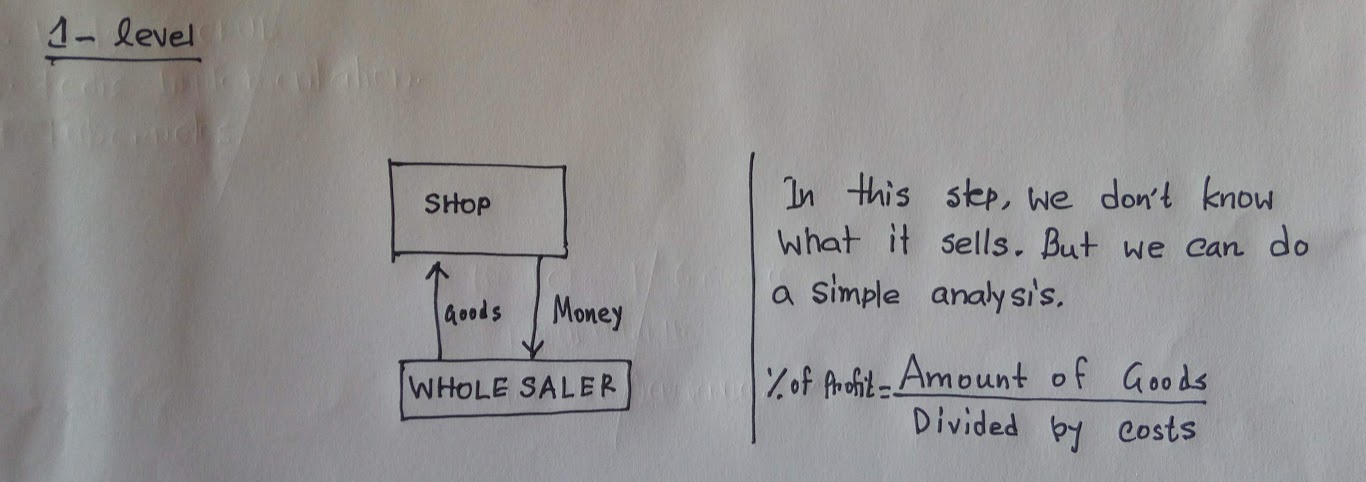 1- level
SHOP
Goods
Money
WHOLE SALER
In this step, we don't know
what it sells. But we can do
a simple analysis.
% of Profit = Amount of Goods
Divided by costs